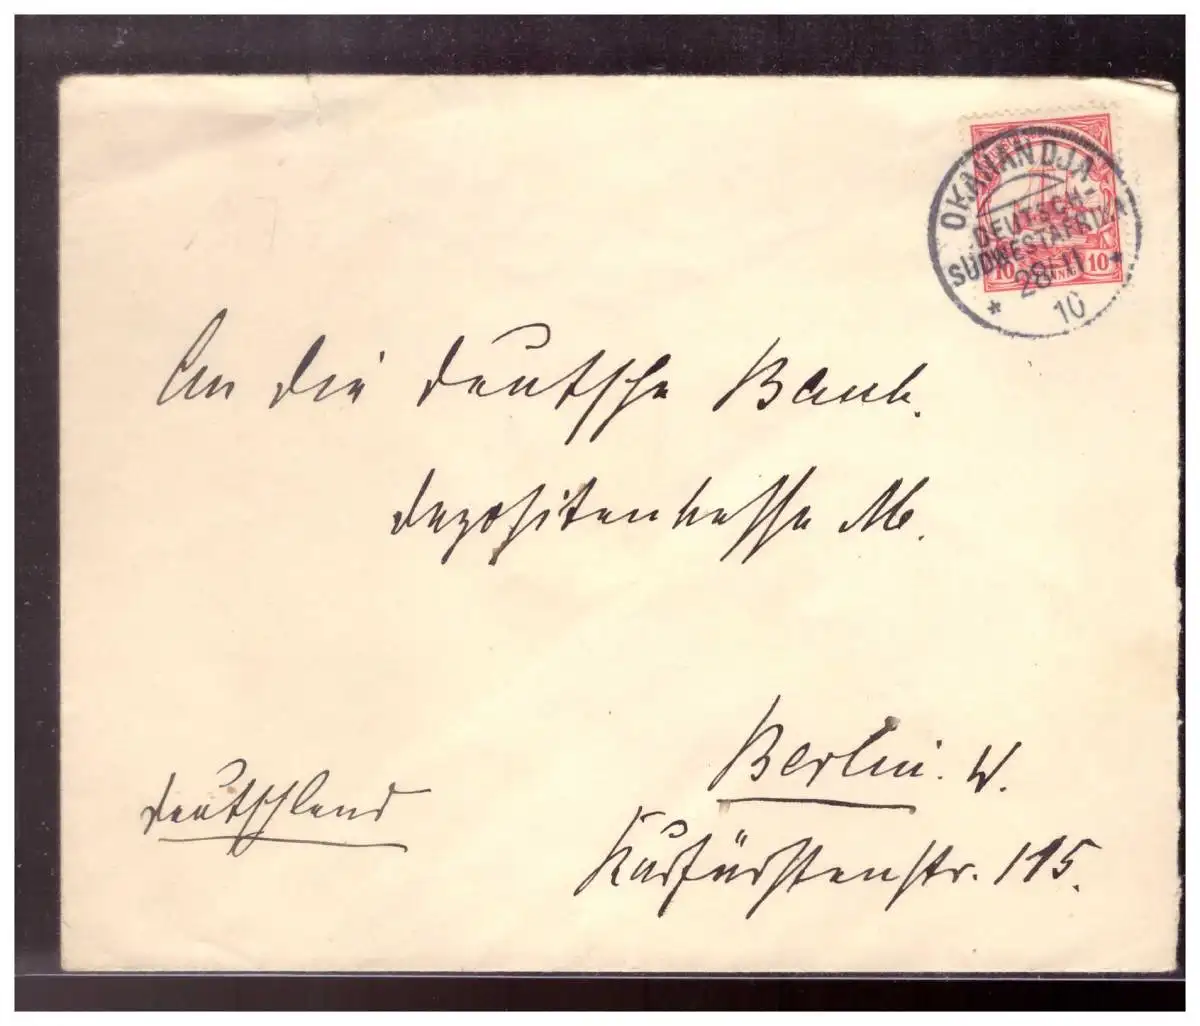 OKAHANDJA
DEUTSCH-
SÜDWESTAFRIKA
28 11
10
10 10
An die Deutsche Bank.
Depositenkasse M.
Berlin. W.
Deutschland
Kurfürstenstr. 115.